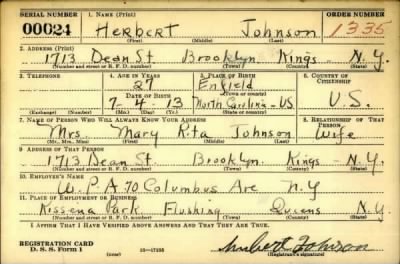 SERIAL NUMBER 1. NAME (Print) ORDER NUMBER
00024 Herbert Johnson 1335
(First) (Middle) (Last)
2. ADDRESS (Print)
1713 Dean St. Brooklyn Kings - N.Y.
(Number and street or R. F. D. number) (Town) (County) (State)
3. TELEPHONE 4. AGE IN YEARS 5. PLACE OF BIRTH 6. COUNTRY OF CITIZENSHIP
27 Enfield
DATE OF BIRTH (Town or county)
7-4-13 North Carolina - US U.S.
(Exchange) (Number) (Mo.) (Day) (Yr.) (State or country)
7. NAME OF PERSON WHO WILL ALWAYS KNOW YOUR ADDRESS 8. RELATIONSHIP OF THAT PERSON
Mrs. Mary Rita Johnson Wife
(Mr., Mrs., Miss) (First) (Middle) (Last)
9. ADDRESS OF THAT PERSON
1713 Dean St. Brooklyn. Kings - N.Y.
(Number and street or R. F. D. number) (Town) (County) (State)
10. EMPLOYER'S NAME
W.P.A 70 Columbus Ave N.Y
11. PLACE OF EMPLOYMENT OR BUSINESS
Kissena Park Flushing Queens N.Y.
(Number and street or R. F. D. number) (Town) (County) (State)
I AFFIRM THAT I HAVE VERIFIED ABOVE ANSWERS AND THAT THEY ARE TRUE.
REGISTRATION CARD
D. S. S. Form 1 (over) Herbert Johnson
(Registrant's signature)